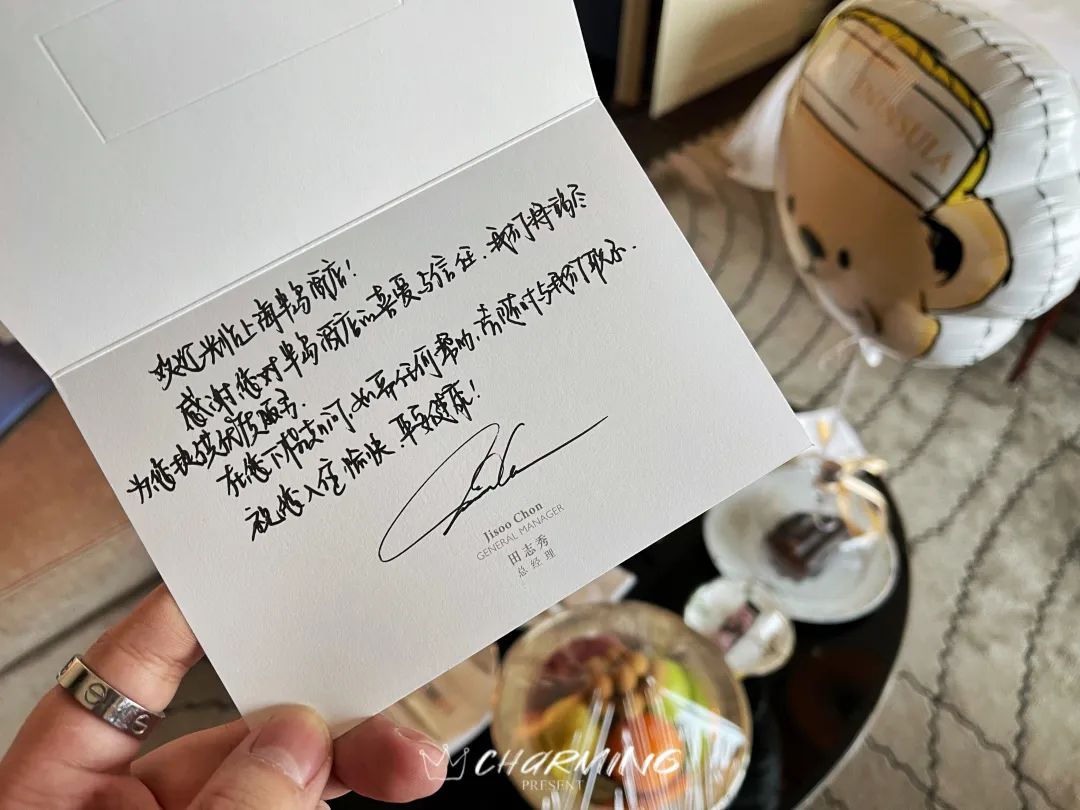 欢迎光临上海半岛酒店!
感谢您对半岛酒店的喜爱与信任.我们将竭尽
为您提供优质服务.
在您下榻期间,如需任何帮助,请随时与我们联系.
祝您入住愉快 平安健康!
Jisoo Chon
GENERAL MANAGER
田志秀
总经理
PENINSULA
CHARMING
PRESENT